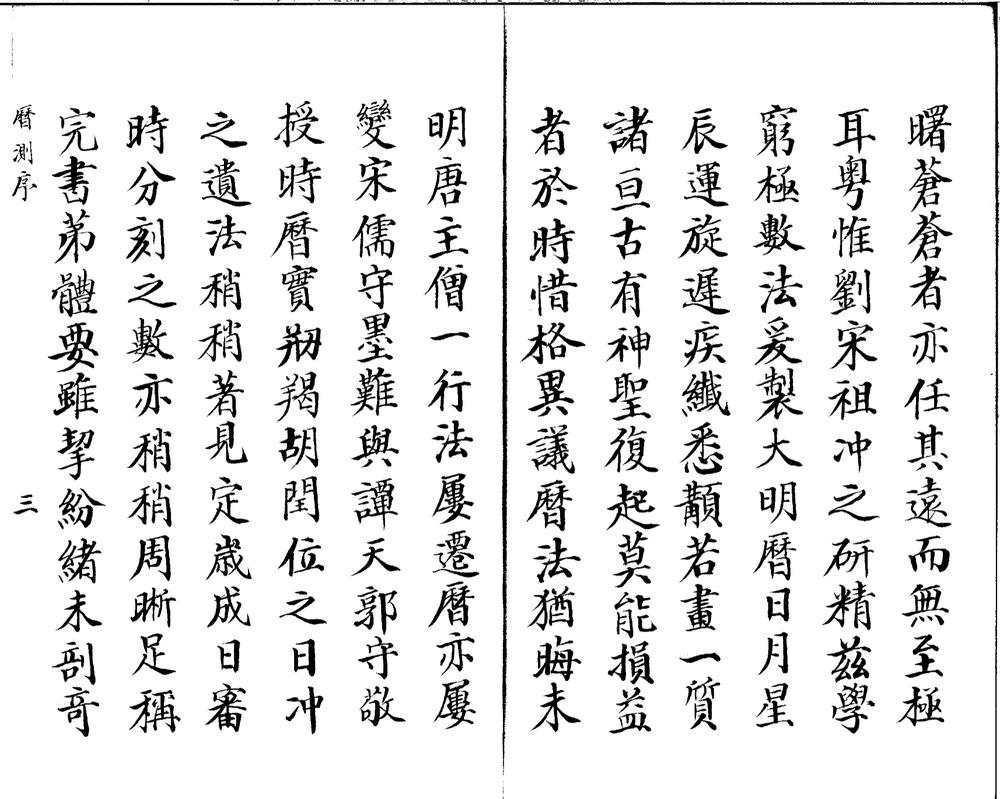 曙蒼蒼者亦任其遠而無至極
耳粤惟劉宋祖冲之研精兹學
窮極數法爰製大明曆日月星
辰運旋遲疾纖悉顜若畫一質
諸亘古有神聖復起莫能損益
者於時惜格異議曆法猶晦未
明唐主僧一行法屢遷曆亦屢
變宋儒守墨難與譚天郭守敬
授時曆實剏羯胡閏位之日冲
之遺法稍稍著見定歳成日審
時分刻之數亦稍稍周晣足稱
完書苐體要雖挈紛緒未剖竒
曆測序
三